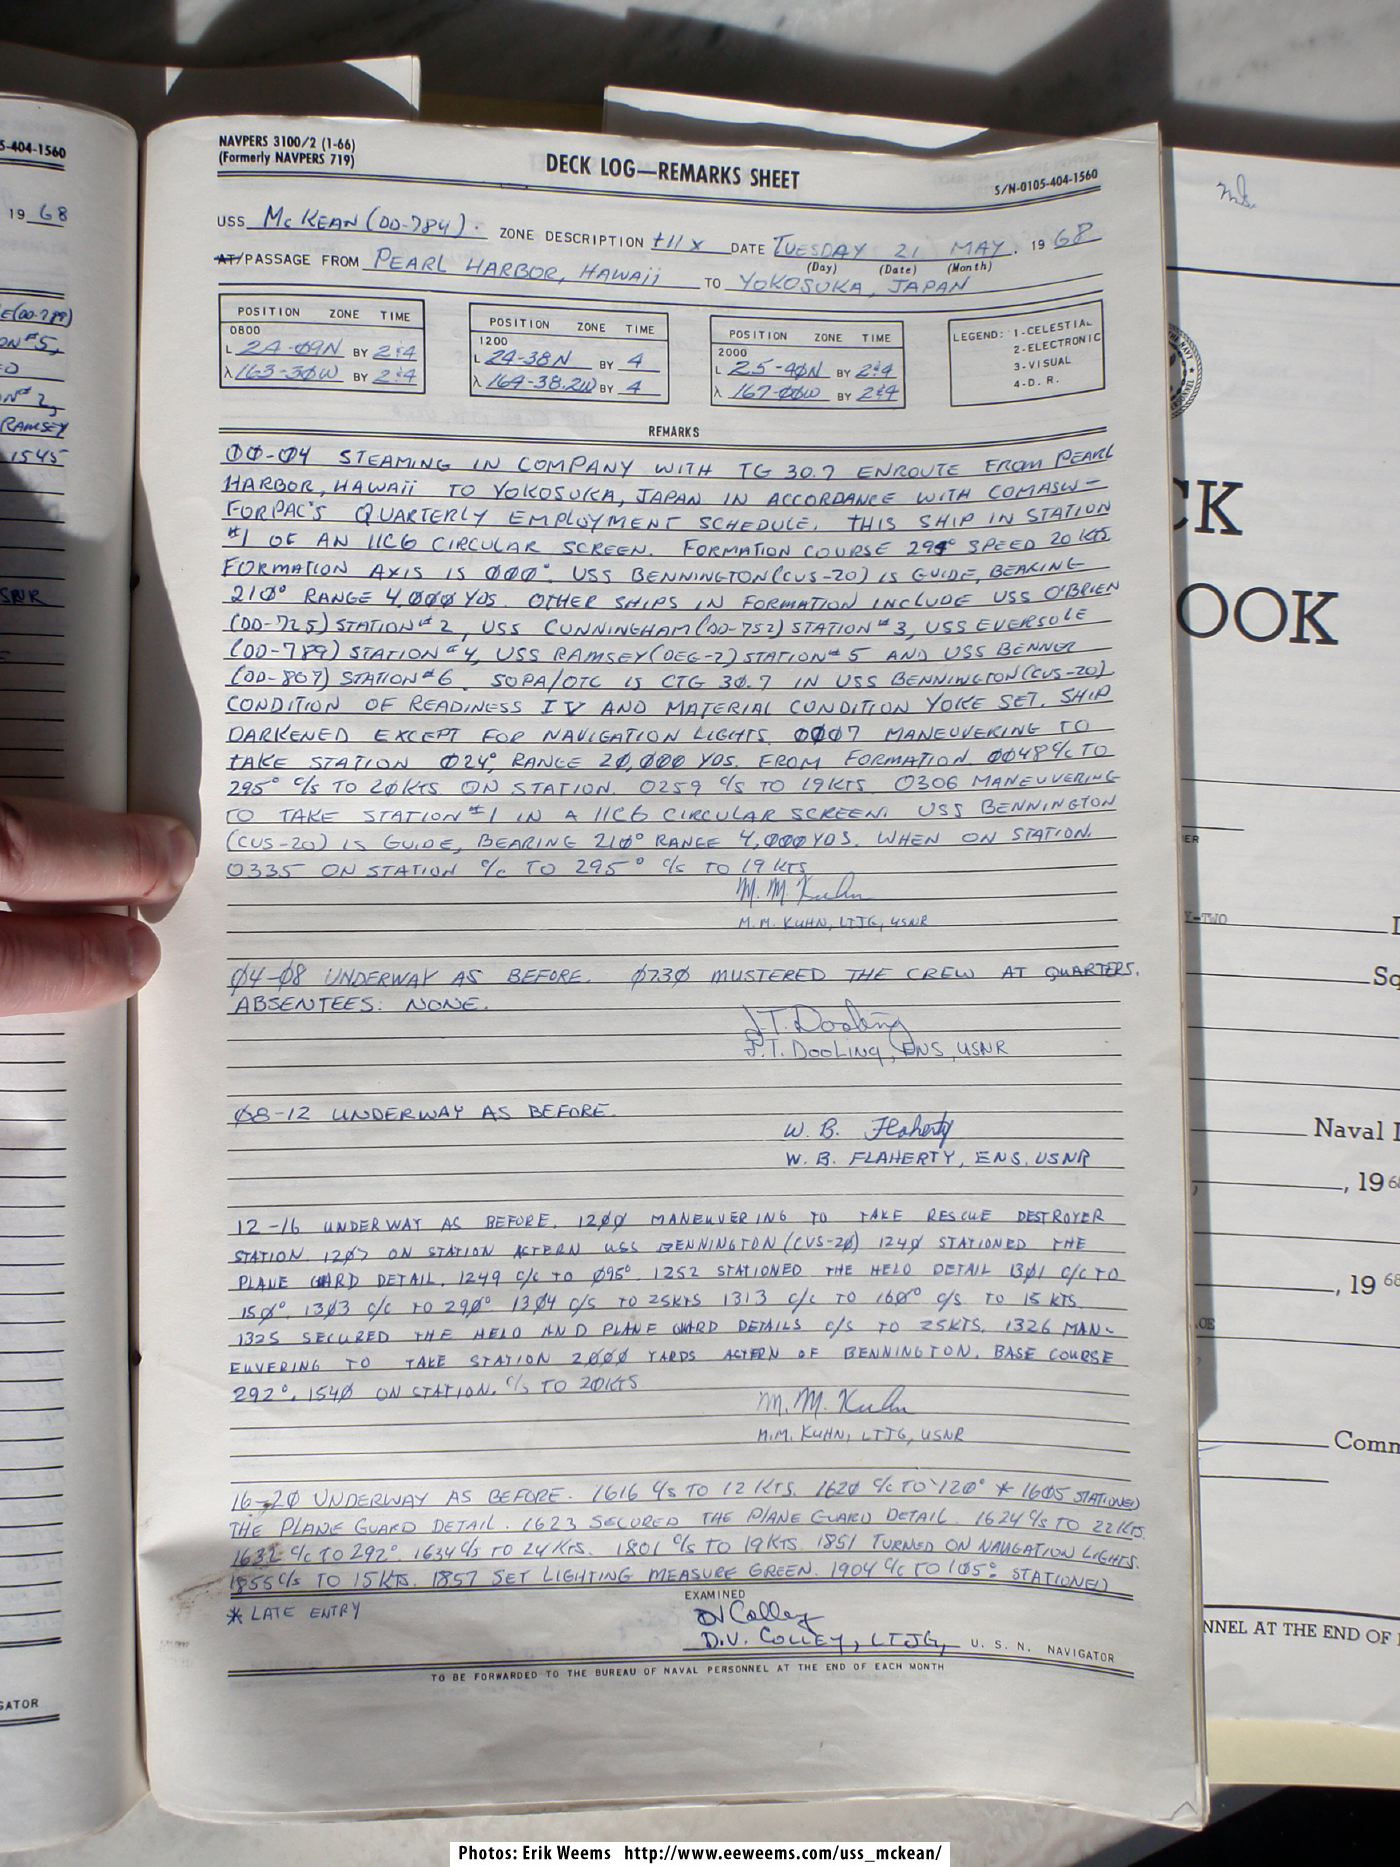 5-404-1560
19 68
E(DD-789)
ON #5,
ON #2,
RAMSEY
1545
USNR
GATOR
NAVPERS 3100/2 (1-66)
(Formerly NAVPERS 719)
DECK LOG—REMARKS SHEET
S/N-0105-404-1560
USS McKEAN (DD-784). ZONE DESCRIPTION +11 X DATE TUESDAY 21 MAY. 19 68
(Day) (Date) (Month)
AT/PASSAGE FROM PEARL HARBOR, HAWAII TO YOKOSUKA, JAPAN
POSITION ZONE TIME
0800
L 24-09N BY 2&4
λ 163-30W BY 2&4
POSITION ZONE TIME
1200
L 24-38N BY 4
λ 164-38.2W BY 4
POSITION ZONE TIME
2000
L 25-40N BY 2&4
λ 167-00W BY 2&4
LEGEND: 1-CELESTIAL
2-ELECTRONIC
3-VISUAL
4-D. R.
REMARKS
00-04 STEAMING IN COMPANY WITH TG 30.7 ENROUTE FROM PEARL
HARBOR, HAWAII TO YOKOSUKA, JAPAN IN ACCORDANCE WITH COMASW-
FORPAC'S QUARTERLY EMPLOYMENT SCHEDULE. THIS SHIP IN STATION
#1 OF AN 11C6 CIRCULAR SCREEN. FORMATION COURSE 294° SPEED 20 KTS
FORMATION AXIS IS 000°. USS BENNINGTON (CVS-20) IS GUIDE, BEARING
210° RANGE 4,000 YDS. OTHER SHIPS IN FORMATION INCLUDE USS O'BRIEN
(DD-725) STATION #2, USS CUNNINGHAM (DD-752) STATION #3, USS EVERSOLE
(DD-789) STATION #4, USS RAMSEY (DEG-2) STATION #5 AND USS BENNER
(DD-807) STATION #6. SOPA/OTC IS CTG 30.7 IN USS BENNINGTON (CVS-20)
CONDITION OF READINESS IV AND MATERIAL CONDITION YOKE SET. SHIP
DARKENED EXCEPT FOR NAVIGATION LIGHTS. 0007 MANEUVERING TO
TAKE STATION 024°, RANGE 20,000 YDS. FROM FORMATION. 0048 C/C TO
295° C/S TO 20KTS ON STATION. 0259 C/S TO 19KTS. 0306 MANEUVERING
TO TAKE STATION #1 IN A 11C6 CIRCULAR SCREEN. USS BENNINGTON
(CVS-20) IS GUIDE, BEARING 210° RANGE 4,000 YDS. WHEN ON STATION.
0335 ON STATION C/C TO 295° C/S TO 19 KTS
M. M. Kuhn
M.M. KUHN, LTJG, USNR
04-08 UNDERWAY AS BEFORE. 0730 MUSTERED THE CREW AT QUARTERS.
ABSENTEES: NONE.
J.T. Dooling
J.T. DOOLING, ENS, USNR
08-12 UNDERWAY AS BEFORE.
W. B. Flaherty
W. B. FLAHERTY, ENS. USNR
12-16 UNDERWAY AS BEFORE. 1200 MANEUVERING TO TAKE RESCUE DESTROYER
STATION. 1207 ON STATION ASTERN USS BENNINGTON (CVS-20) 1240 STATIONED THE
PLANE GUARD DETAIL. 1249 C/C TO 095°. 1252 STATIONED THE HELO DETAIL 1301 C/C TO
150°. 1303 C/C TO 290° 1304 C/S TO 25KTS 1313 C/C TO 160° C/S TO 15 KTS
1325 SECURED THE HELO AND PLANE GUARD DETAILS C/S TO 25KTS. 1326 MAN-
EUVERING TO TAKE STATION 2000 YARDS ASTERN OF BENNINGTON. BASE COURSE
292°. 1540 ON STATION. C/S TO 20KTS
M. M. Kuhn
M.M. KUHN, LTJG, USNR
16-20 UNDERWAY AS BEFORE. 1616 C/S TO 12 KTS. 1620 C/C TO 120° * 1605 STATIONED
THE PLANE GUARD DETAIL. 1623 SECURED THE PLANE GUARD DETAIL. 1624 C/S TO 22KTS.
1632 C/C TO 292° 1634 C/S TO 24 KTS. 1801 C/S TO 19KTS 1851 TURNED ON NAVIGATION LIGHTS.
1855 C/S TO 15KTS. 1857 SET LIGHTING MEASURE GREEN. 1904 C/C TO 105°. STATIONED
* LATE ENTRY
EXAMINED
DV Colley
D.V. COLLEY, LTJG, U. S. N. NAVIGATOR
TO BE FORWARDED TO THE BUREAU OF NAVAL PERSONNEL AT THE END OF EACH MONTH
CK
OOK
Y-TWO
Sq
Naval
, 1968
, 1968
Comm
NNEL AT THE END OF
Photos: Erik Weems http://www.eeweems.com/uss_mckean/